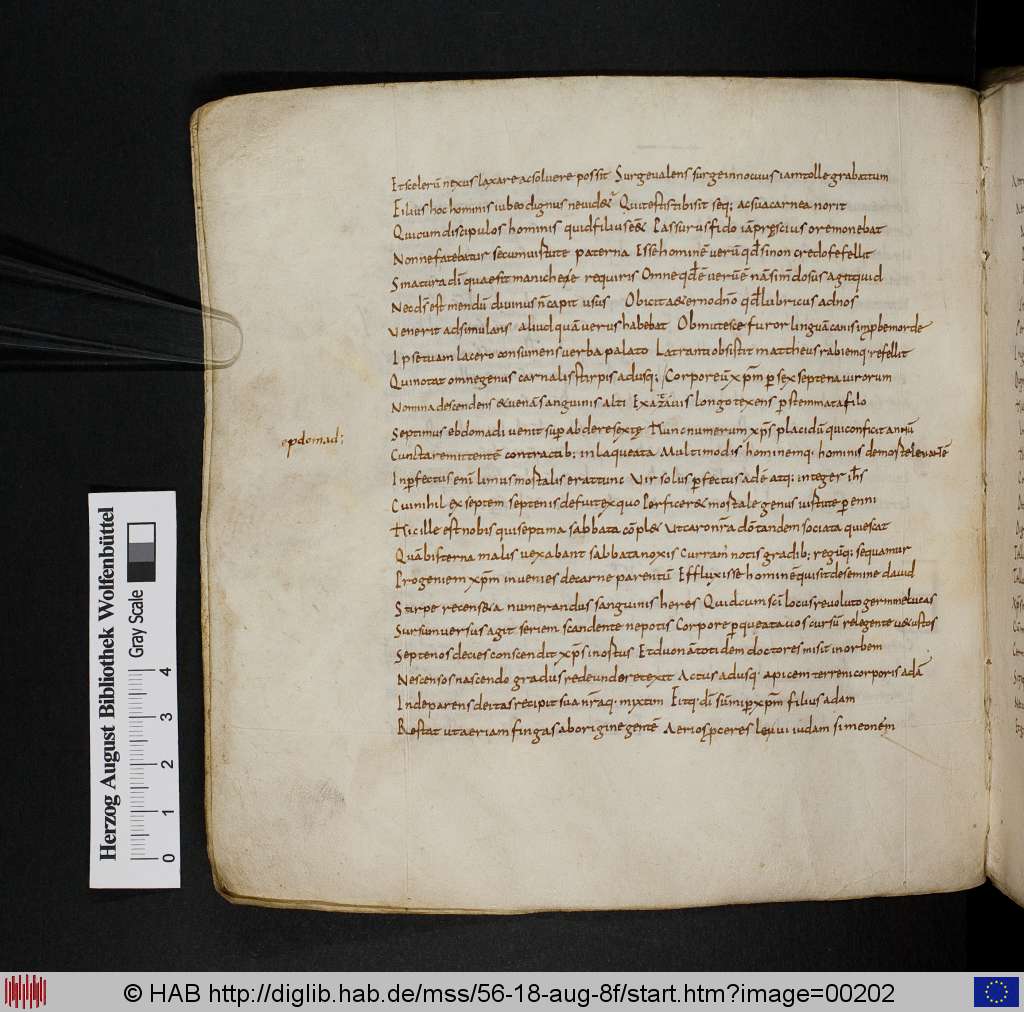 Et scelerū nexus laxare ac soluere possit Surge ualens surge innocuus iam tolle grabattum
Filius hoc hominis iubeo dignus
Qui testis tibi sit seq; ac sua carnea norit
Qui cum discipulos hominis quid filius eēt Passurus fido iā pręscius ore monebat
Nonne fatebatur secum uirtute paterna Esse hominē uerū qđ si non credo fefellit
Si natura dī quae sit manicheǽe requiris Omne qđ ē uerū ē nā sim dosus agit quid
Nec dš est mendū diuinus ñ capit usus Obicit aeternođno qđ lubricus ad nos
Venerit adsimulans aliud quā uerus habebat Obmutesce furor linguā canis impbe morde
Ipse tuam lacero consumens uerba palato Latranti obsistit mattheus rabiemq· refellit
Qui notat omne genus carnalis stirpis adusq; Corporeū xp̄m p sex septena uirorum
Nomina descendens & uenā sanguinis alti Ex atauis longo texens p stemmata filo
epdomad;
Septimus ebdomadi uenit sup ab dere sexte Hunc numerum xp̄s placidū qui conficit annū
Cunsta remittentē contractib; inlaqueata Multimodis hominemq· hominis de morte leuantē
Inpfectus enī limus mortalis erat tunc Vir solus pfectus adē atq; integer ihs̄
Cui nihil ex septem septenis defuit ex quo Perficeret mortale genus uirtute perenni
Hic ille est nobis qui septima sabbata cōpl& Vt caro nr̄a dō tandem sociata quiescat
Quā bis terna malis uexabant sabbata noxis Curram notis gradib; regūq; sequamur
Progeniem xp̄m inuenies de carne parentū Effluxisse hominē quisit de semine dauid
Stirpe recenseta numerandus sanguinis heres Quid cum scī locus reuoluto germine lucas
Sursum uersus agit seriem scandente nepotis Corpore p que atauos cursū relegente uetustos
Septenos decies conscendit xp̄s in ortus Et duo nā totidem doctores misit in orbem
Nescensos nascendo gradus redeundo retexit Actus adusq· apicem terreni corporis adā
Inde parens deitas recipit sua nr̄aq· mixtim Fitq· dī sūmi p xp̄m filius adam
Restat ut aeriam fingas ab origine gentē Aerios pceres leuui iudam simeonem
Herzog August Bibliothek Wolfenbüttel
Gray Scale
0 1 2 3 4
© HAB http://diglib.hab.de/mss/56-18-aug-8f/start.htm?image=00202